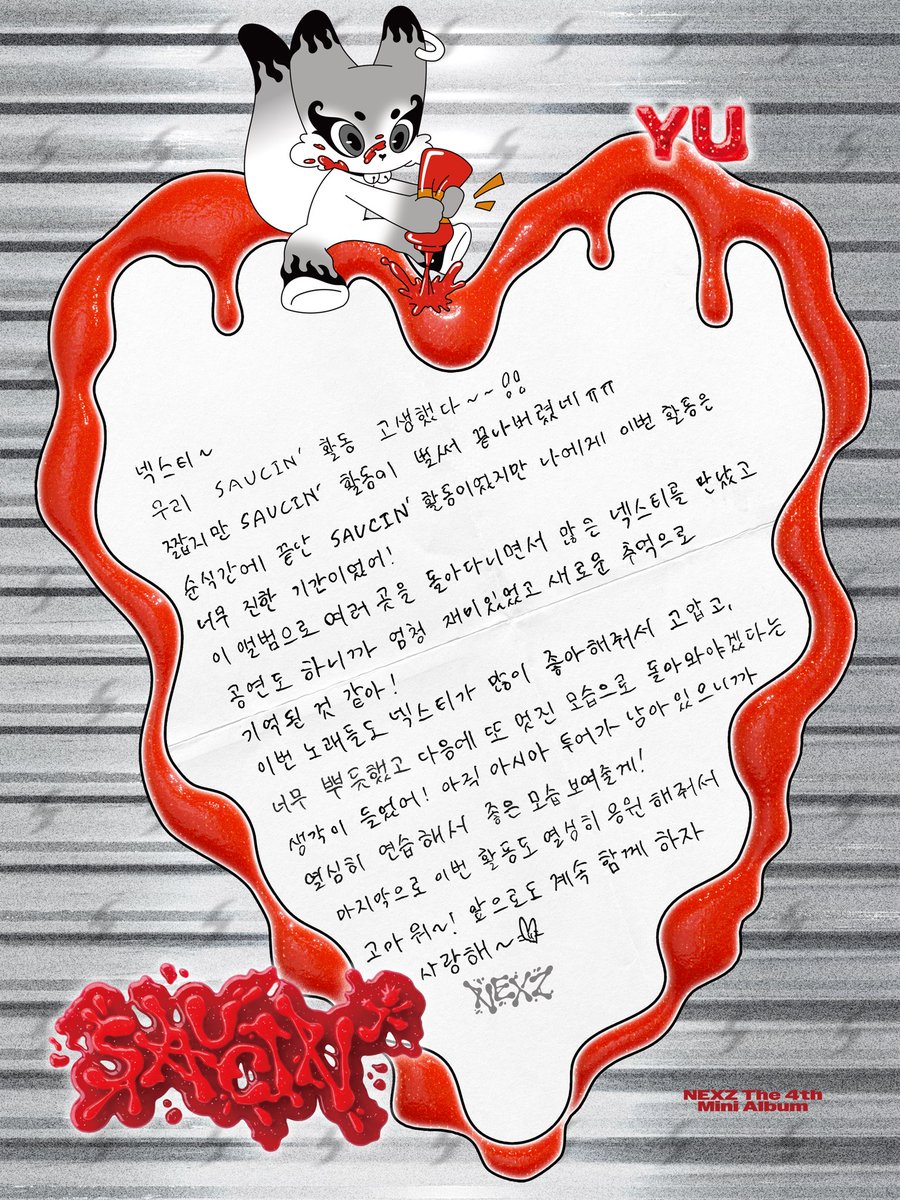 YU
넥스티~
우리 SAUCIN' 활동 고생했다~~!!
짧지만 SAUCIN' 활동이 벌써 끝나버렸네ㅠㅠ
순식간에 끝난 SAUCIN' 활동이었지만 나에게 이번 활동은
너무 진한 기간이었어!
이 앨범으로 여러 곳을 돌아다니면서 많은 넥스티를 만났고
공연도 하니까 엄청 재미있었고 새로운 추억으로
기억된 것 같아!
이번 노래들도 넥스티가 많이 좋아해줘서 고맙고,
너무 뿌듯했고 다음에 또 멋진 모습으로 돌아와야겠다는
생각이 들었어! 아직 아시아 투어가 남아있으니까
열심히 연습해서 좋은 모습 보여줄게!
마지막으로 이번 활동도 열심히 응원해줘서
고마워~! 앞으로도 계속 함께 하자
사랑해~
NEXZ
SAUCIN'
NEXZ The 4th
Mini Album